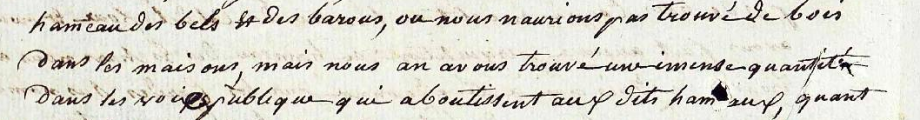 hameau des bels et des barous, ou nous naurions pas trouvé de bois
dans les maisons, mais nous an avons trouvé une imense quantité
dans les voies publique qui aboutissent aux dits hameaux, quant